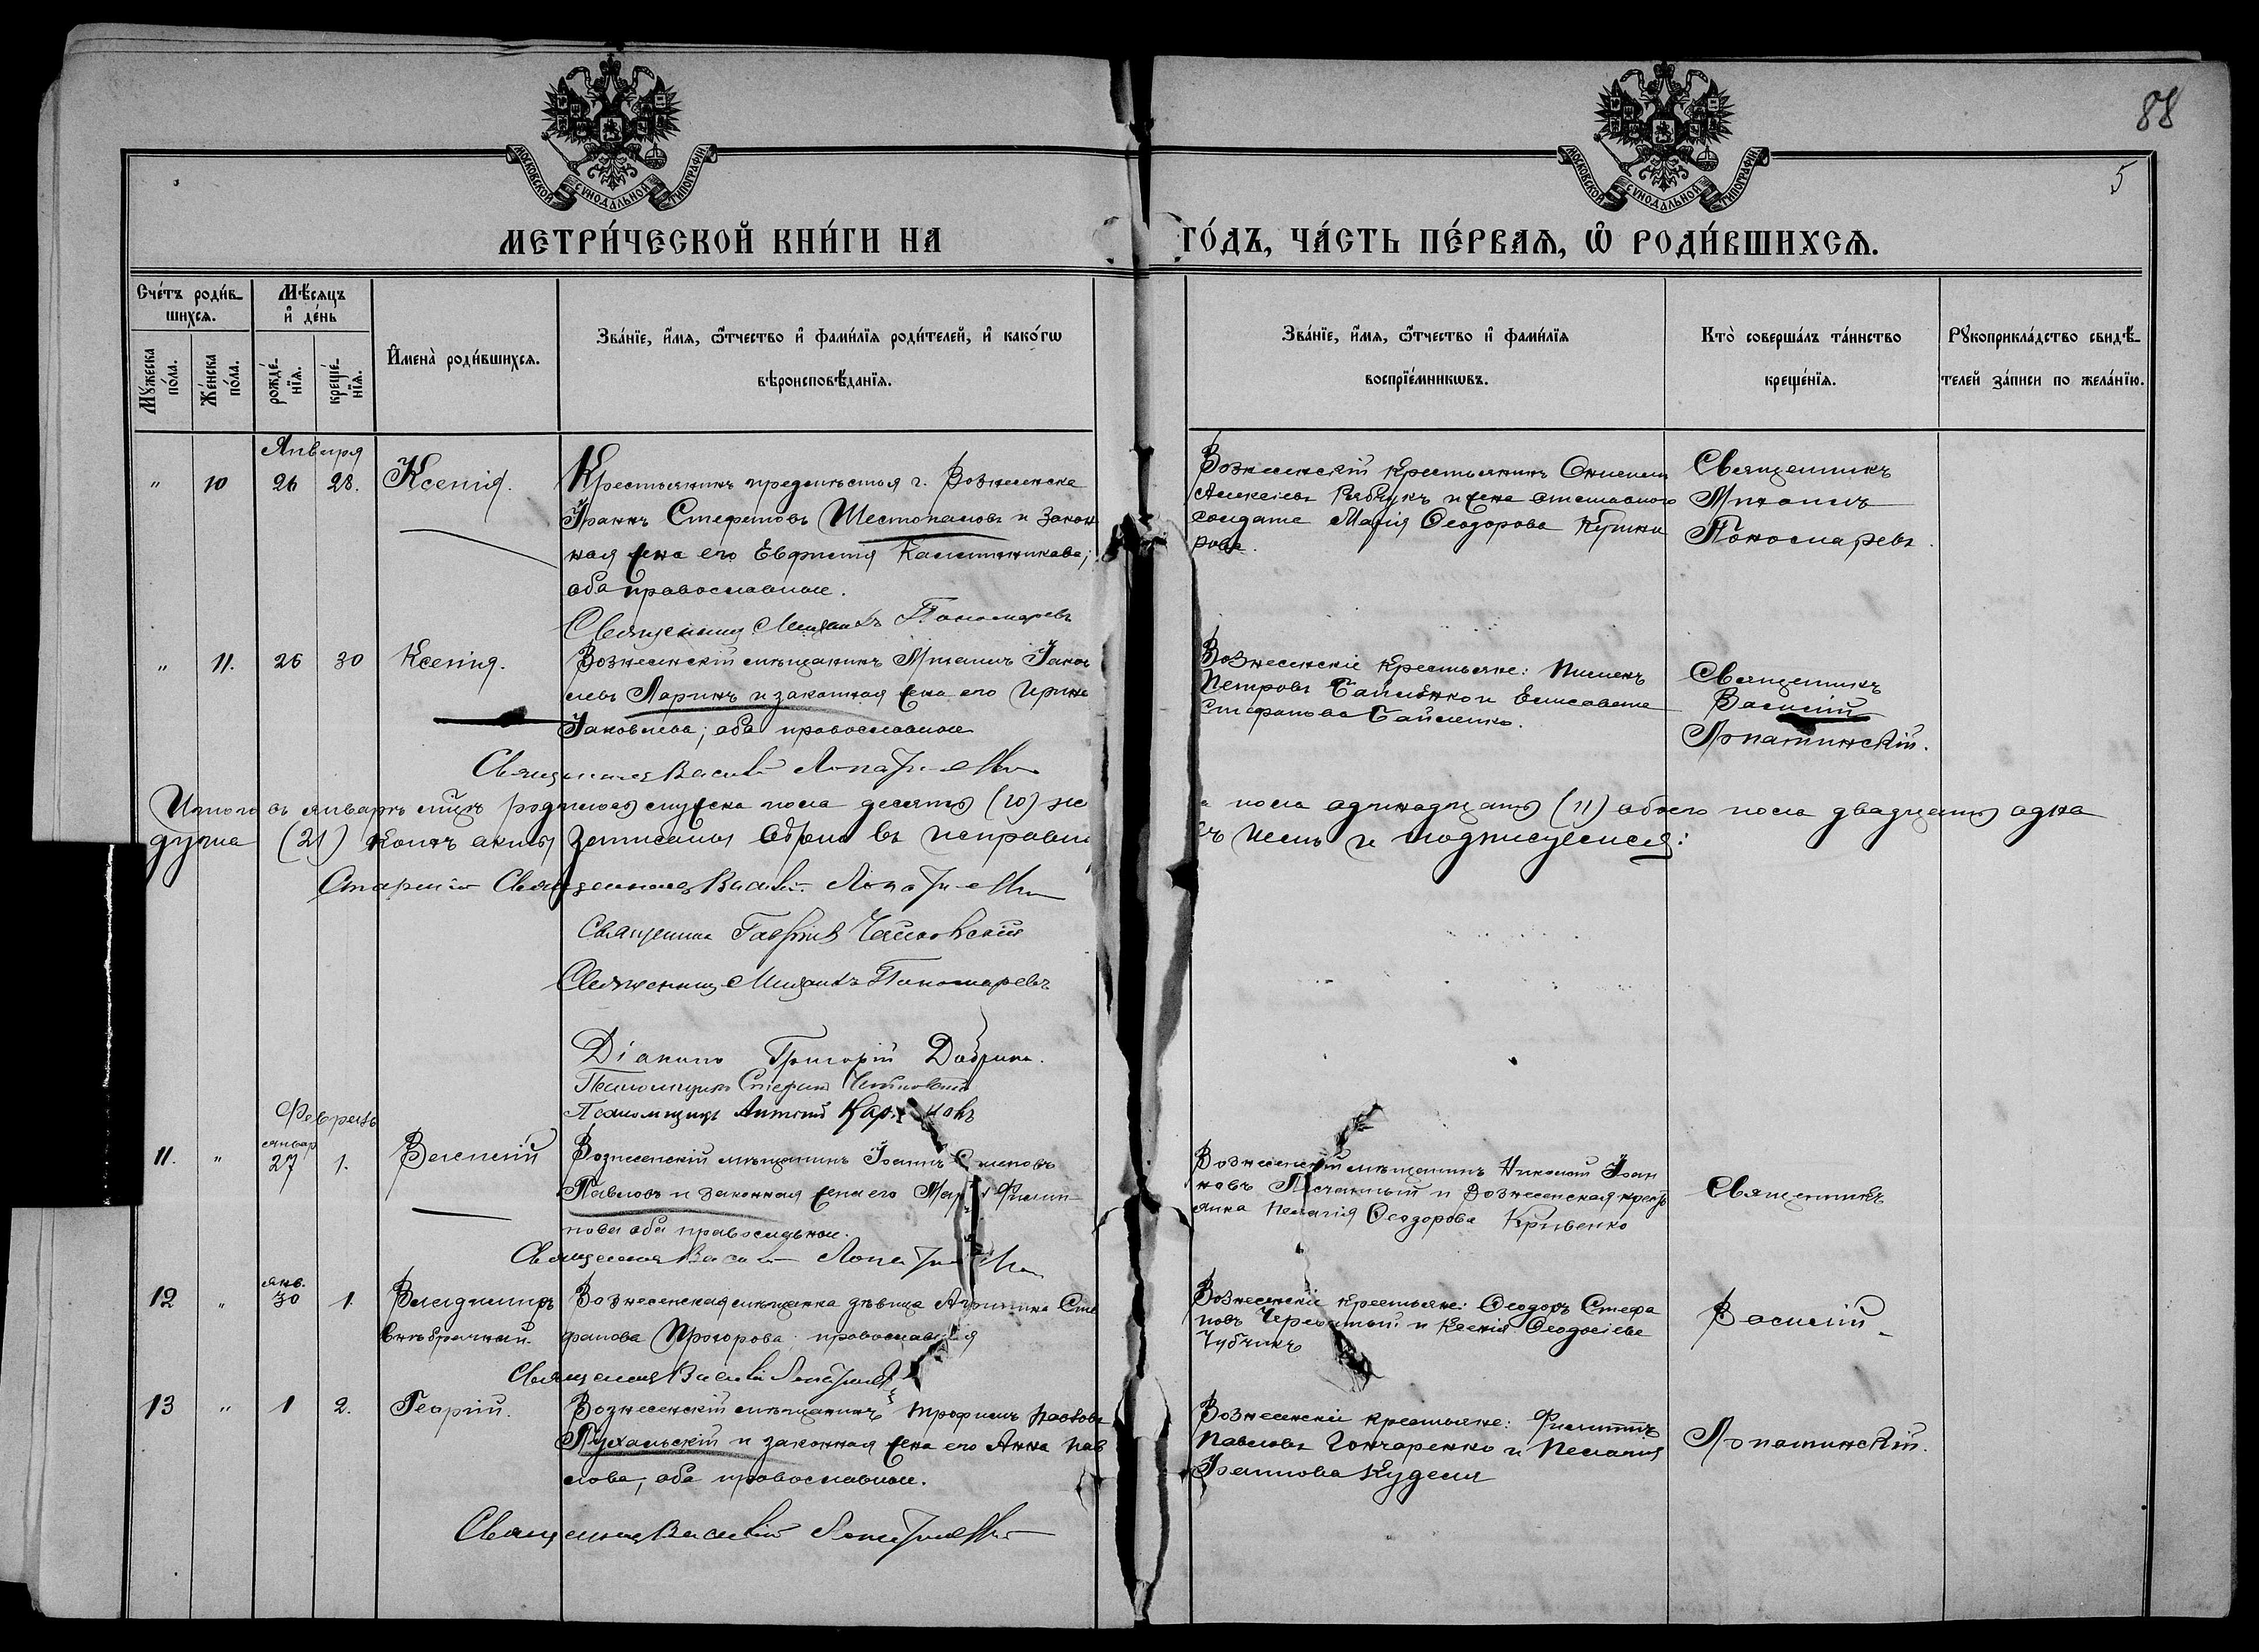 88
5
МОСКОВСКОЙ СѴНОДАЛЬНОЙ ТИПОГРАФІИ.
МОСКОВСКОЙ СѴНОДАЛЬНОЙ ТИПОГРАФІИ.
МЕТРИ́ЧЕСКОЙ КНИ́ГИ НА ГО́ДЪ, ЧА́СТЬ ПЕ́РВАѦ, Ѽ РОДИ́ВШИХСѦ.
Сче́тъ роди́в-
шихсѧ.
Мꙋ́жеска
по́ла.
Же́нска
по́ла.
Мѣ́сѧцъ
и҆ де́нь
рожде́-
нїѧ.
креще́-
нїѧ.
И҆мена̀ роди́вшихсѧ.
Зва́нїе, и҆́мѧ, ѻ҆́тчество и҆ фами́лїѧ роди́телей, и҆ како́гѡ
вѣроисповѣ́данїѧ.
Зва́нїе, и҆́мѧ, ѻ҆́тчество и҆ фами́лїѧ
воспрїе́мникѡвъ.
Кто̀ соверша́лъ та́инство
креще́нїѧ.
Рꙋкоприкла́дство свидѣ́-
телей за́писи по жела́нїю.
Января
" 10 26 28. Ксенія.
Крестьянинъ предмѣстья г. Вознесенска
Іоаннъ Стефановъ Шестопаловъ и закон
ная жена его Евфимія Калинникова;
оба православные.
Священникъ Михаилъ Пономаревъ
Вознесенскій крестьянинъ
Алексіевъ Рябчукъ и жена отставного
солдата Марія Ѳеодорова
Священникъ
Михаилъ
Пономаревъ.
" 11. 26 30 Ксенія.
Вознесенскій мѣщанинъ Михаилъ Іаков
левъ Ларинъ и законная жена его Ирина
Іаковлева; оба православные
Священникъ Василій Лопатинскій
Вознесенскіе крестьяне: Пименъ
Петровъ Байленко и Елисавета
Стефанова Байленко.
Священникъ
Василій
Лопатинскій.
Итого въ январѣ мѣсяцѣ родилось мужеска пола десять (10) же а пола одинадцать (11) обоего пола двадцать одна
душа (21) коихъ акты записаны вѣрно въ исправн въ чемъ и подписуемся:
Старшій Священникъ Василій Лопатинскій
Священникъ Гавріилъ
Священникъ Михаилъ Пономаревъ
Діаконъ Григорій
Псаломщикъ Стефанъ
Псаломщикъ Антоній
Февраль
январ
11. " 27 1. Василій
Вознесенскій мѣщанинъ Іоаннъ
Павловъ и законная жена его Мар Филип
пова оба православные.
Священникъ Василій Лопатинскій
Вознесенскій мѣщанинъ Николай Іоан
новъ Песчанный и Вознесенская крест
янка Пелагія Ѳеодорова Кривенко
Священникъ
янв.
12 " 30 1. Владимиръ
внѣбрачный.
Вознесенская мѣщанка дѣвица Агрипина Сте
фанова Прохорова православная
Священникъ Василій Лопатинскій
Вознесенскіе крестьяне: Ѳеодоръ Стефа
новъ и Ксенія Ѳеодосіева
Чубчикъ
Василій
13 " 1 2. Георгій.
Вознесенскій мѣщанинъ Трофимъ Павловъ
Пухальскій и законная жена его Анна Пав
лова, оба православные.
Священникъ Василій Лопатинскій
Вознесенскіе крестьяне: Филиппъ
Павловъ Гончаренко и Пелагія
Іоаннова Куделя
Лопатинскій.